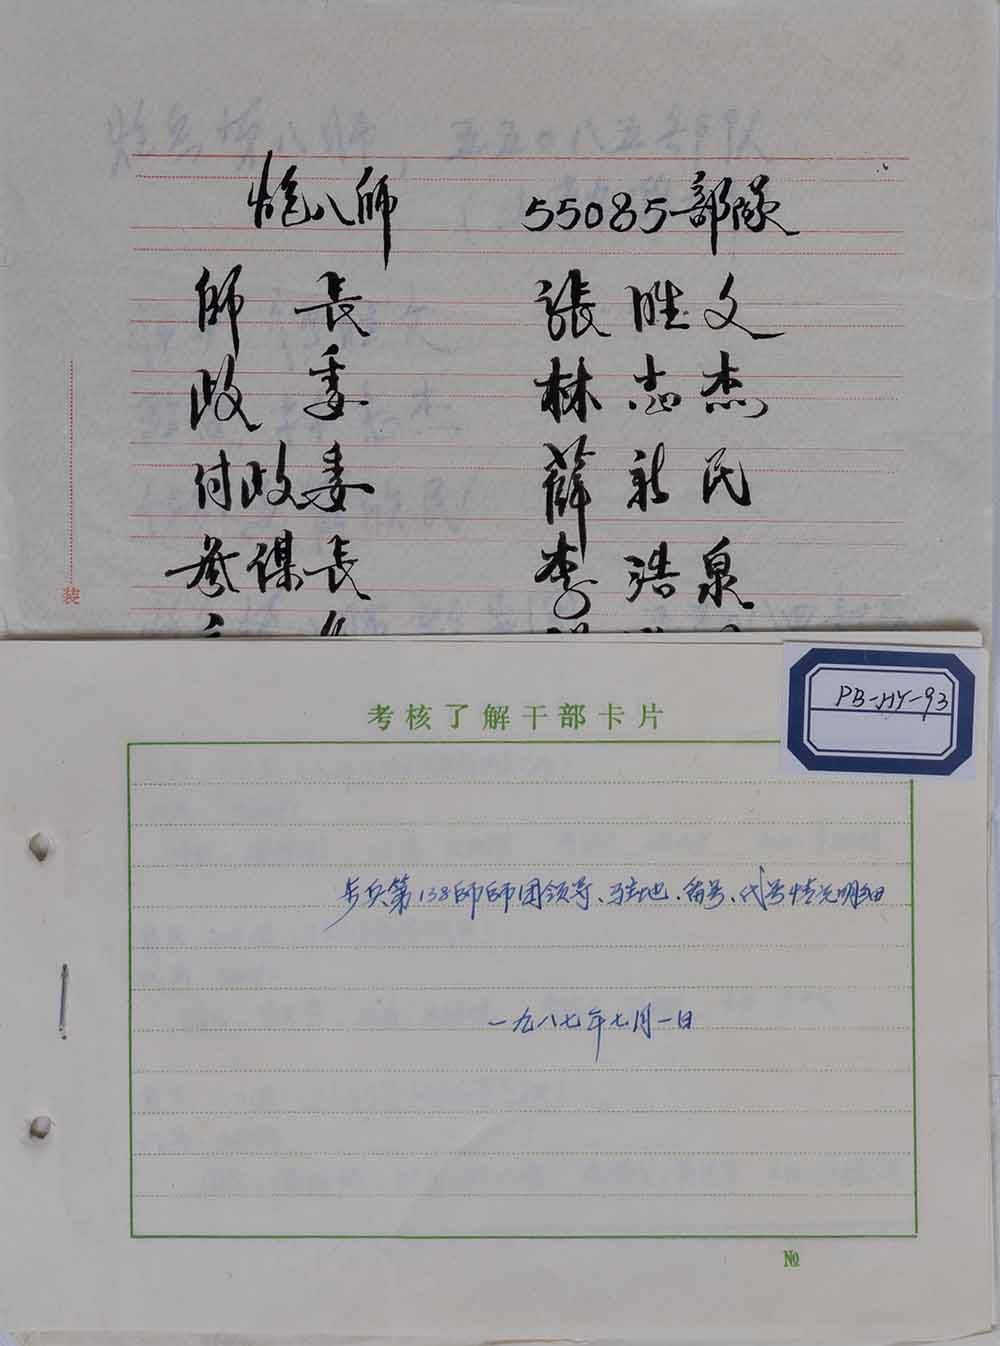 炮八師 55085部隊
師長 張胜文
政委 林志杰
付政委 薛新民
参谋長 李浩泉
装
PB-HY-93
考核了解干部卡片
步兵第138師師团领导、驻地、番号、代号情况明细
一九八七年七月一日
№